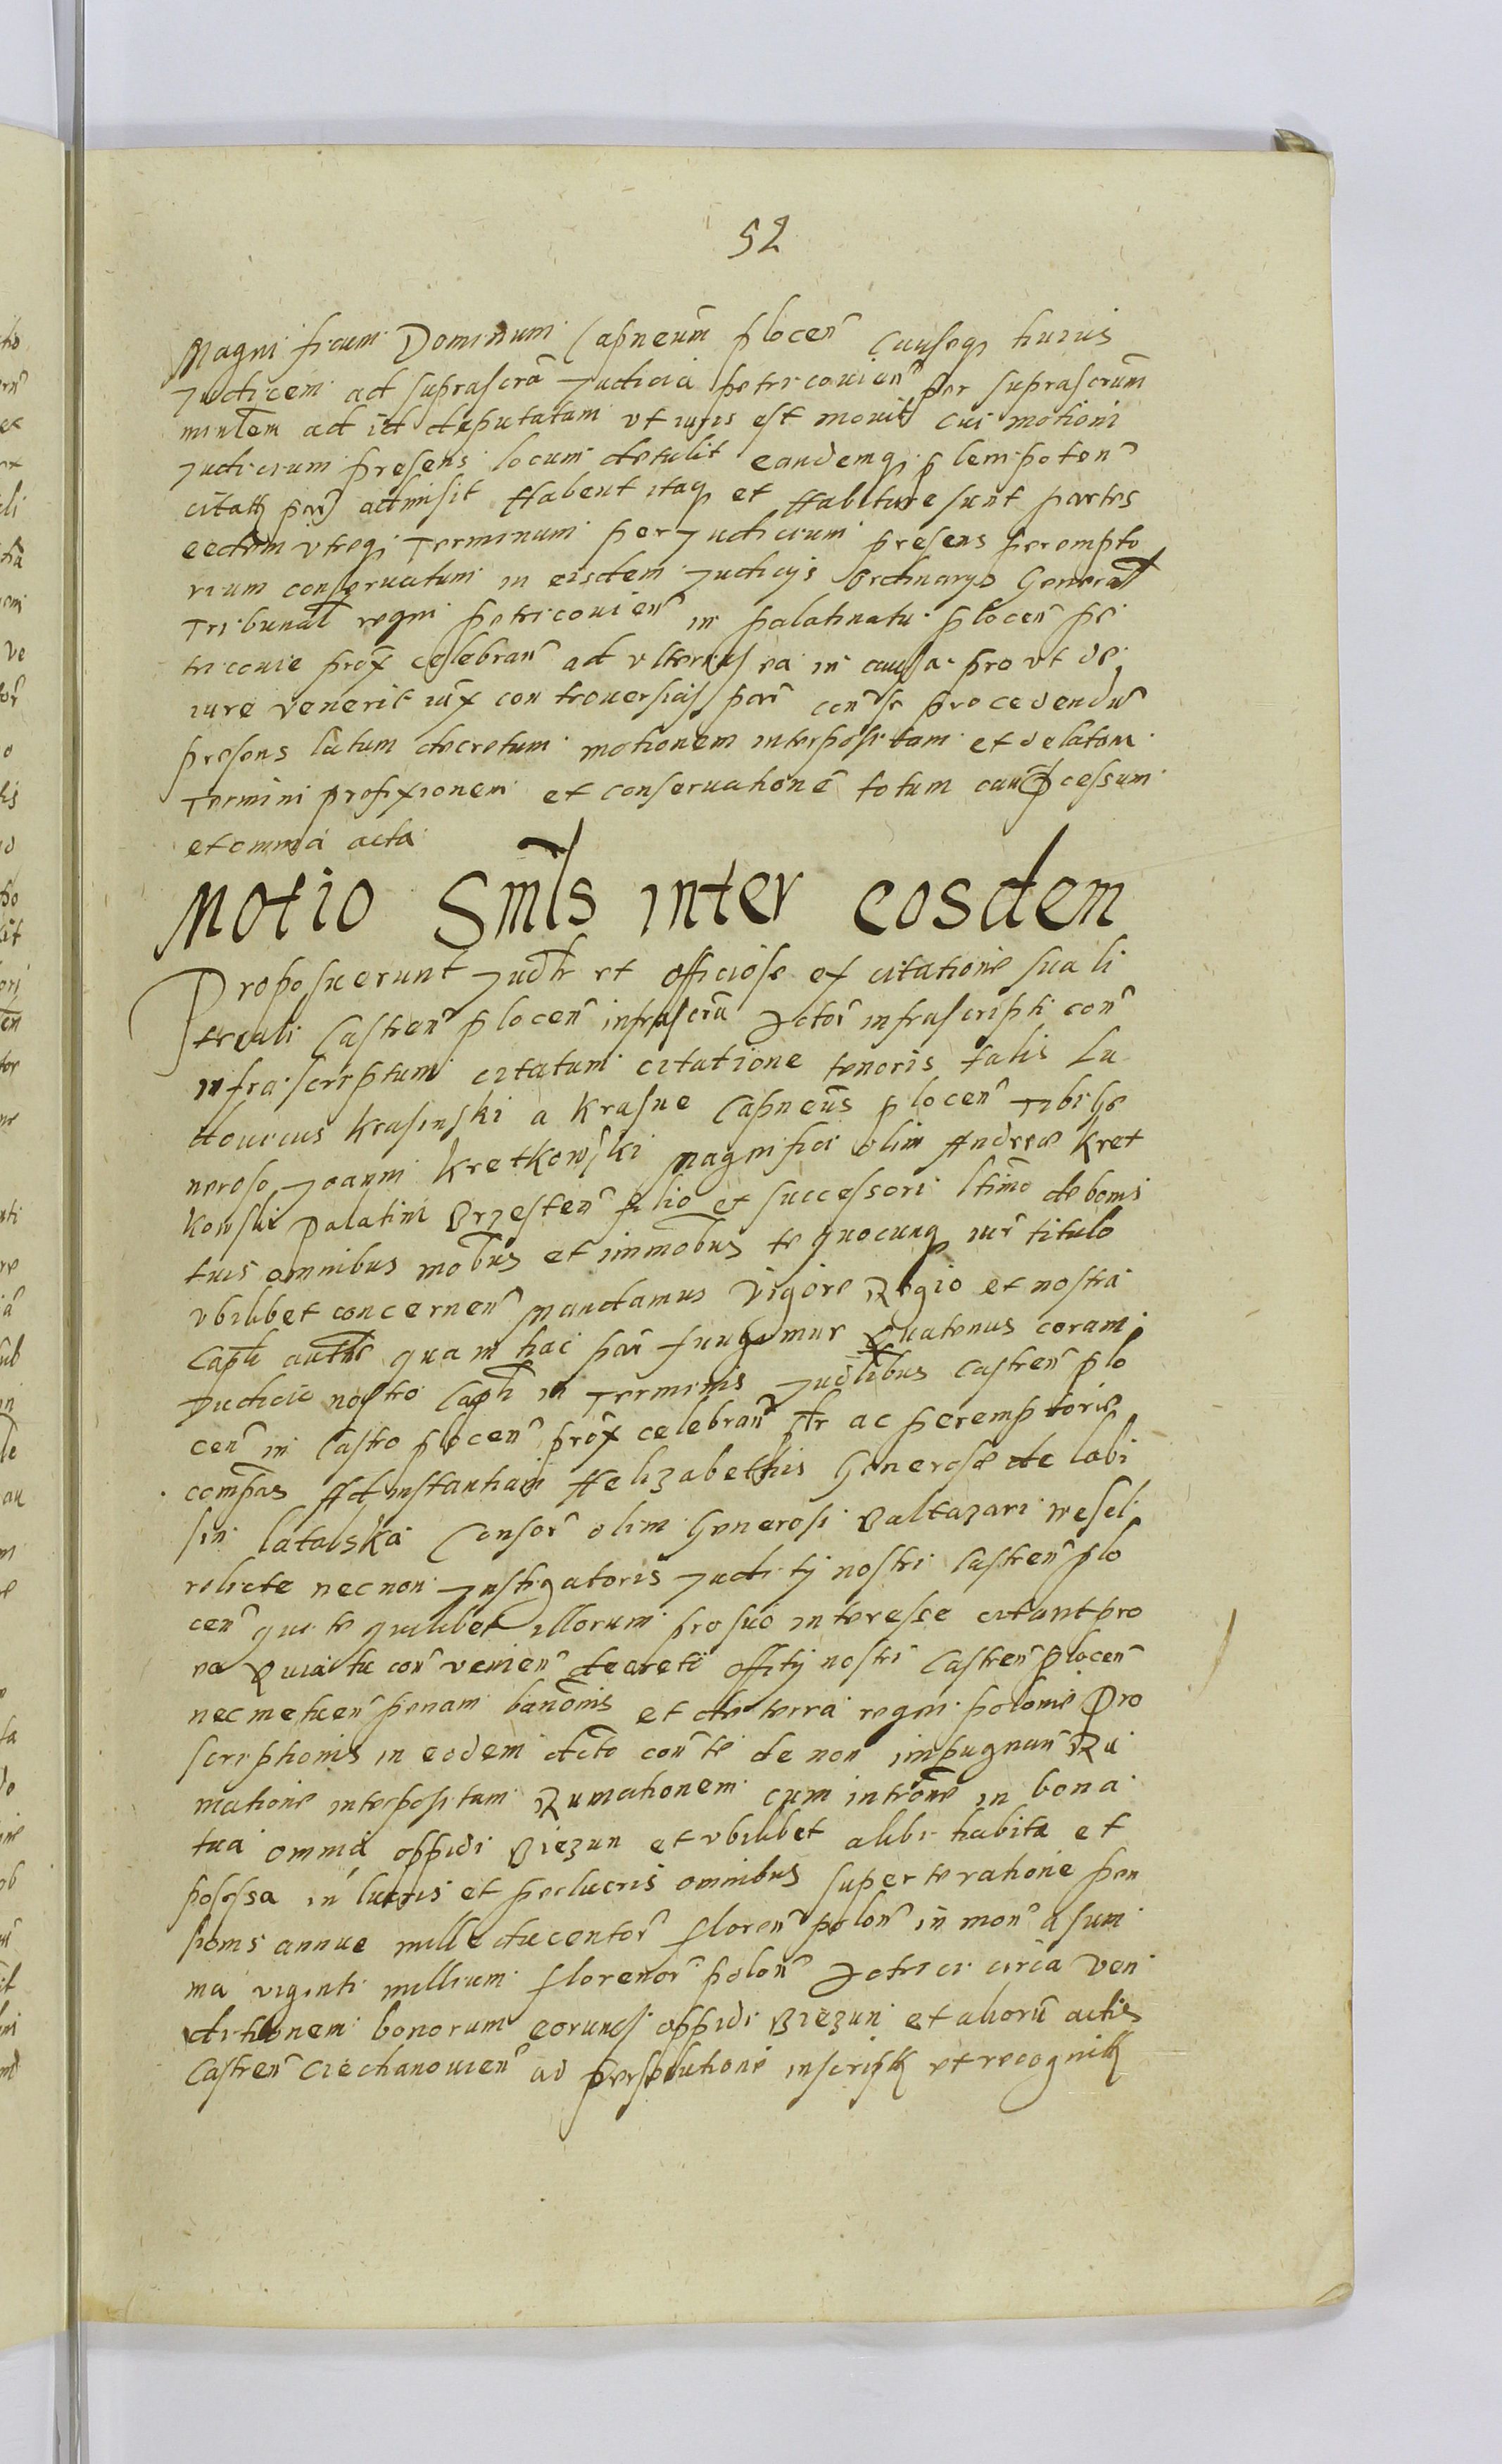 52
Magnificum Dominum Capneum plocen̄ Causeq huius
Judicem ad suprascrā Judicia petricouien̄ per suprascrūm
minlem ad id deputatum vt iuris est mouit Cui motioni
Judicium presens locum detulit eandemq plenipoten̄
citati par̄ admisit Habent itaq et Habiture sunt partes
eedem vtreq Terminum per Judicium presens perempto
rium conseruatum in eisdem Judicijs Ordinarijs General
Tribunal regni petricouien̄ in palatinatu plocen̄ pe
tricouie prox̄ celebran̄ ad vlterius ea in causa prout de
iure venerit iux̄ controuersias par̄ procedendū
presens latum decretum motionem interpositam et delatam
Termini prefixionem et conseruationē totum cau processum
et omnia acta
Motio Smls inter eosdem
Proposuerunt Judlr et officiose ex citatione sua li
terali Castren̄ plocen̄ infrascrā Actor̄ infrascripti con̄
infrascriptum citatum citatione tenoris talis Lu
douicus Krasinski a Krasne Capneus plocen̄ Tibi Ge
neroso Joanni Kretkowski Magnifici olim Andreæ Kret
kowski Palatini Brzesten̄ filio et successori ltimo de bonis
tuis omnibus mobus et immobus te quocunq iur̄ titulo
vbilibet concernen̄ Mandamus Vigore Regio et nostra
Capli autte qua in hac par̄ fungimur Quatenus coram
Judicio nostro Capli in Terminis Judlibus castren̄ plo
cen̄ in Castro plocen̄ prox̄ celebran̄ ac peremptorie
compās Ad instantiam Helizabethis Generosæ de labi
sin latalska Consor̄ olim Generosi Baltazari wesel
relicte necnon Instigatoris Judicij nostri Castren̄ plo
cen̄ qui te quilibet illorum pro suo interesse citant pro
ea Quia tu con̄ venien̄ decreti offitij nostri Castren̄ plocen̄
nec metuen̄ penam banōnis et de terra regni polonie Pro
scriptionis in eodem dcto con̄ te de non impugnan̄ Ru
matione interpositam Rumationem cum introne in bona
tua omnia oppidi Biezun et vbilibet alibi habita et
possessa in lucris et perlucris omnibus super te ratione pen
sionis annue mille ducentor̄ floren̄ polon̄ in mon̄ a sum
ma viginti millium florenor̄ polon̄ Actrici circa ven
ditionem bonorum eorundi oppidi Biezun et aliorū actis
Castren̄ Ciechanouien̄ ad persolutionē inscript et recognit